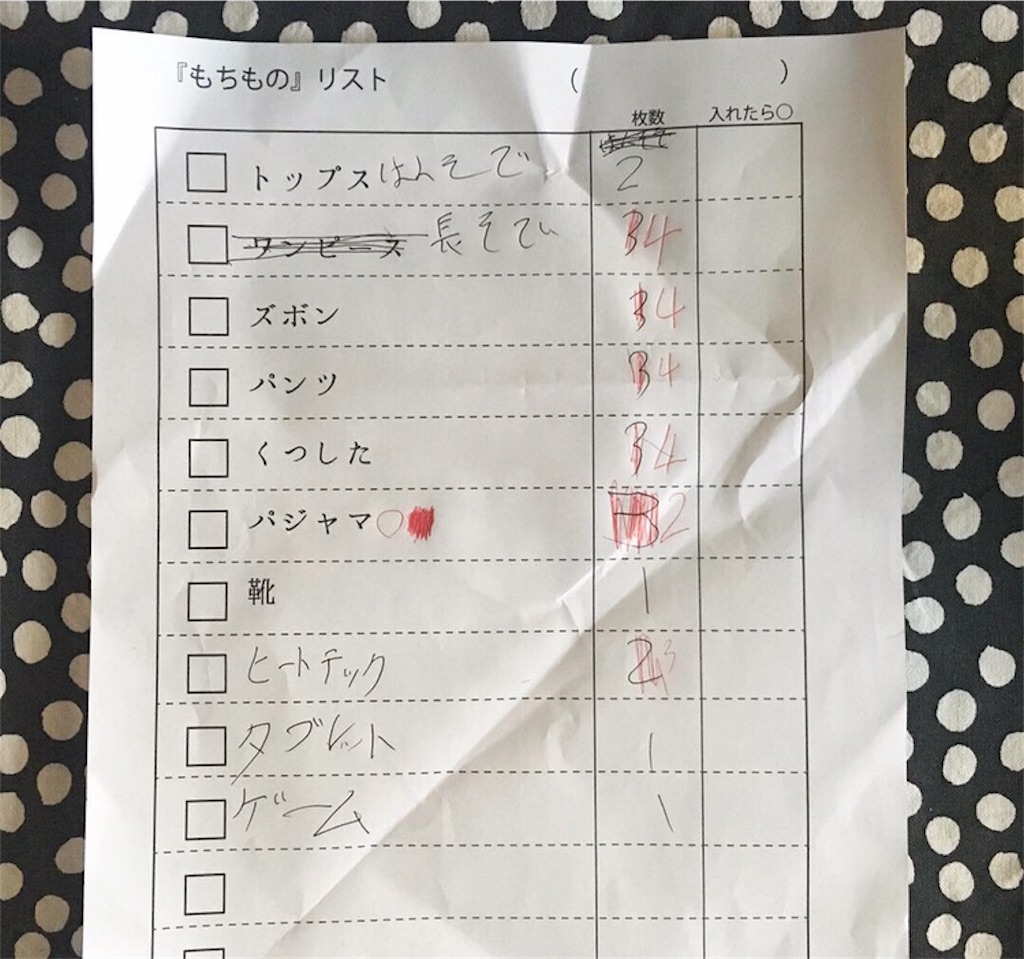 『もちもの』リスト ( )
枚数 入れたら○
トップス はんそで 2
ワンピース 長そでい 3 4
ズボン 3 4
パンツ 3 4
くつした 3 4
パジャマ○ 3 2
靴 1
ヒートテック 2 3
タブレット 1
ゲーム 1